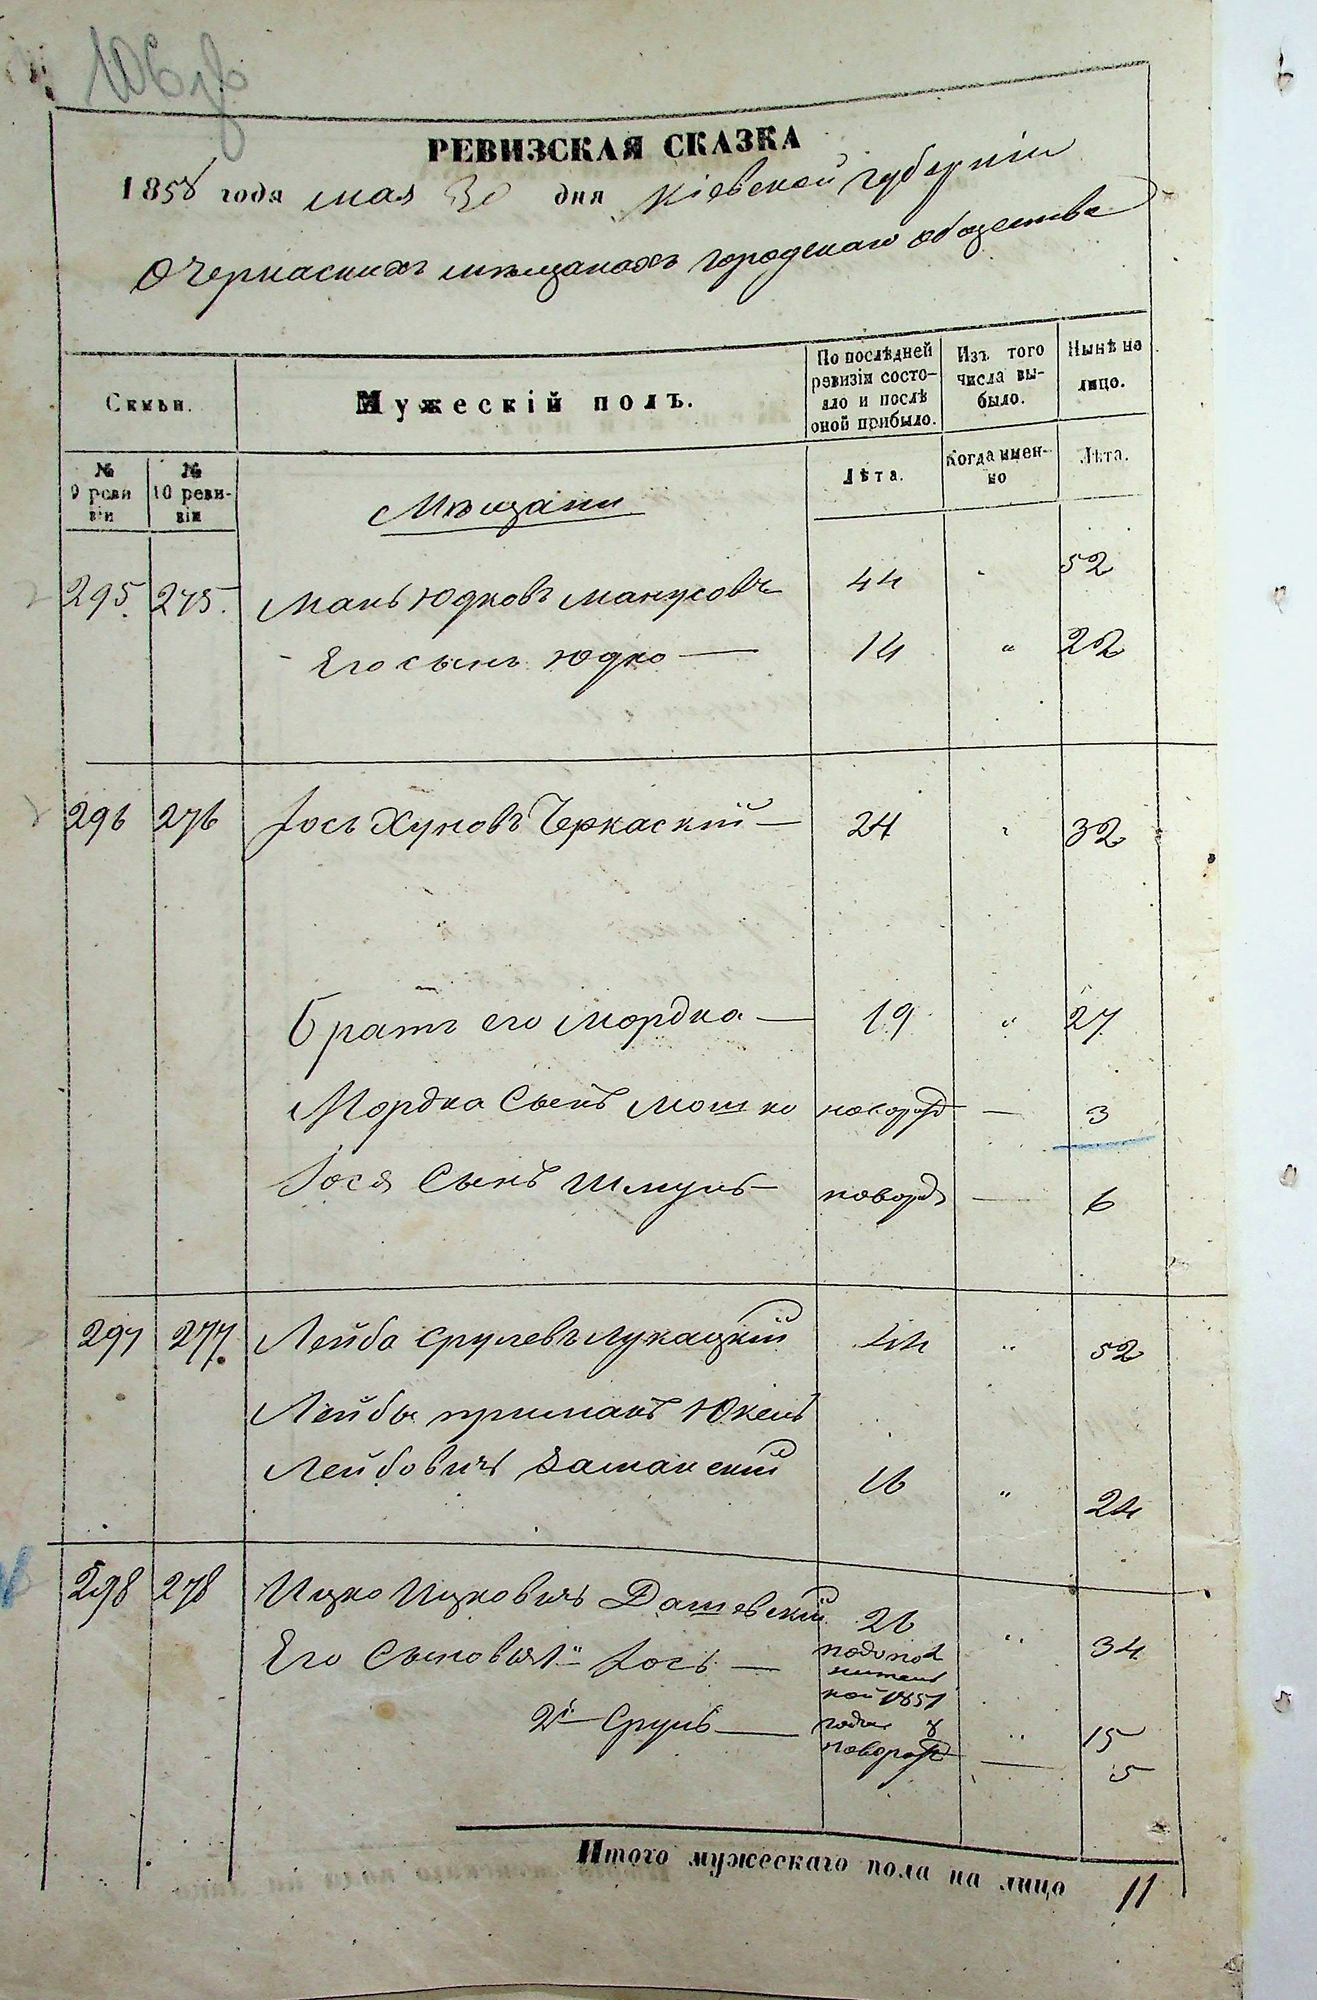 РЕВИЗСКАЯ СКАЗКА
1858 года мая 30 дня Кіевской губерніи
О Черкаскихъ мѣщанахъ городскаго общества
Семьи.
Мужескій полъ.
По послѣдней ревизіи состояло и послѣ оной прибыло.
Изъ того числа выбыло.
Нынѣ на лицо.
№ 9 ревизіи
№ 10 ревизіи
Лѣта.
Когда именно
Лѣта.
Мѣщани
295. 275. Мань Юдковъ Манусовъ 44 " 52
Его сынъ Юдко — 14 " 22
296 276 Іось Хуновъ Черкаскій — 24 " 32
Братъ его Мордка — 19 " 27
Мордка Сынъ Мошко новорожд — 3
Іося Сынъ Шмуль — новорд — 6
297 277. Лейба Срулевъ Лукацкій 44 " 52
Лейбы примакъ Юкель
Лейбовичъ Заманскій 16 " 24
298 278 Ицко Ицковичъ Дашевскій 26 " 34
Его Сыновья 1й Іось — подополнительной 1851 года 8 " 15
2й Сруль — новорожд — 5
Итого мужескаго пола на лицо 11